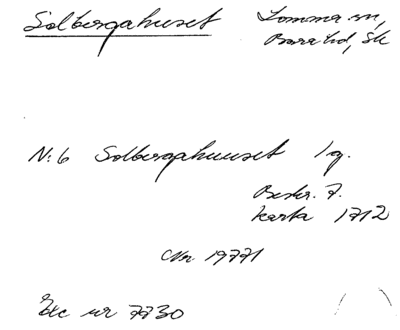 Solbergahuset Lomma sn,
Bara hd, Sk
N:6 Solbergahuuset 1 g.
Beskr. t.
karta 1712
Nr. 19771
Ekc nr 7730